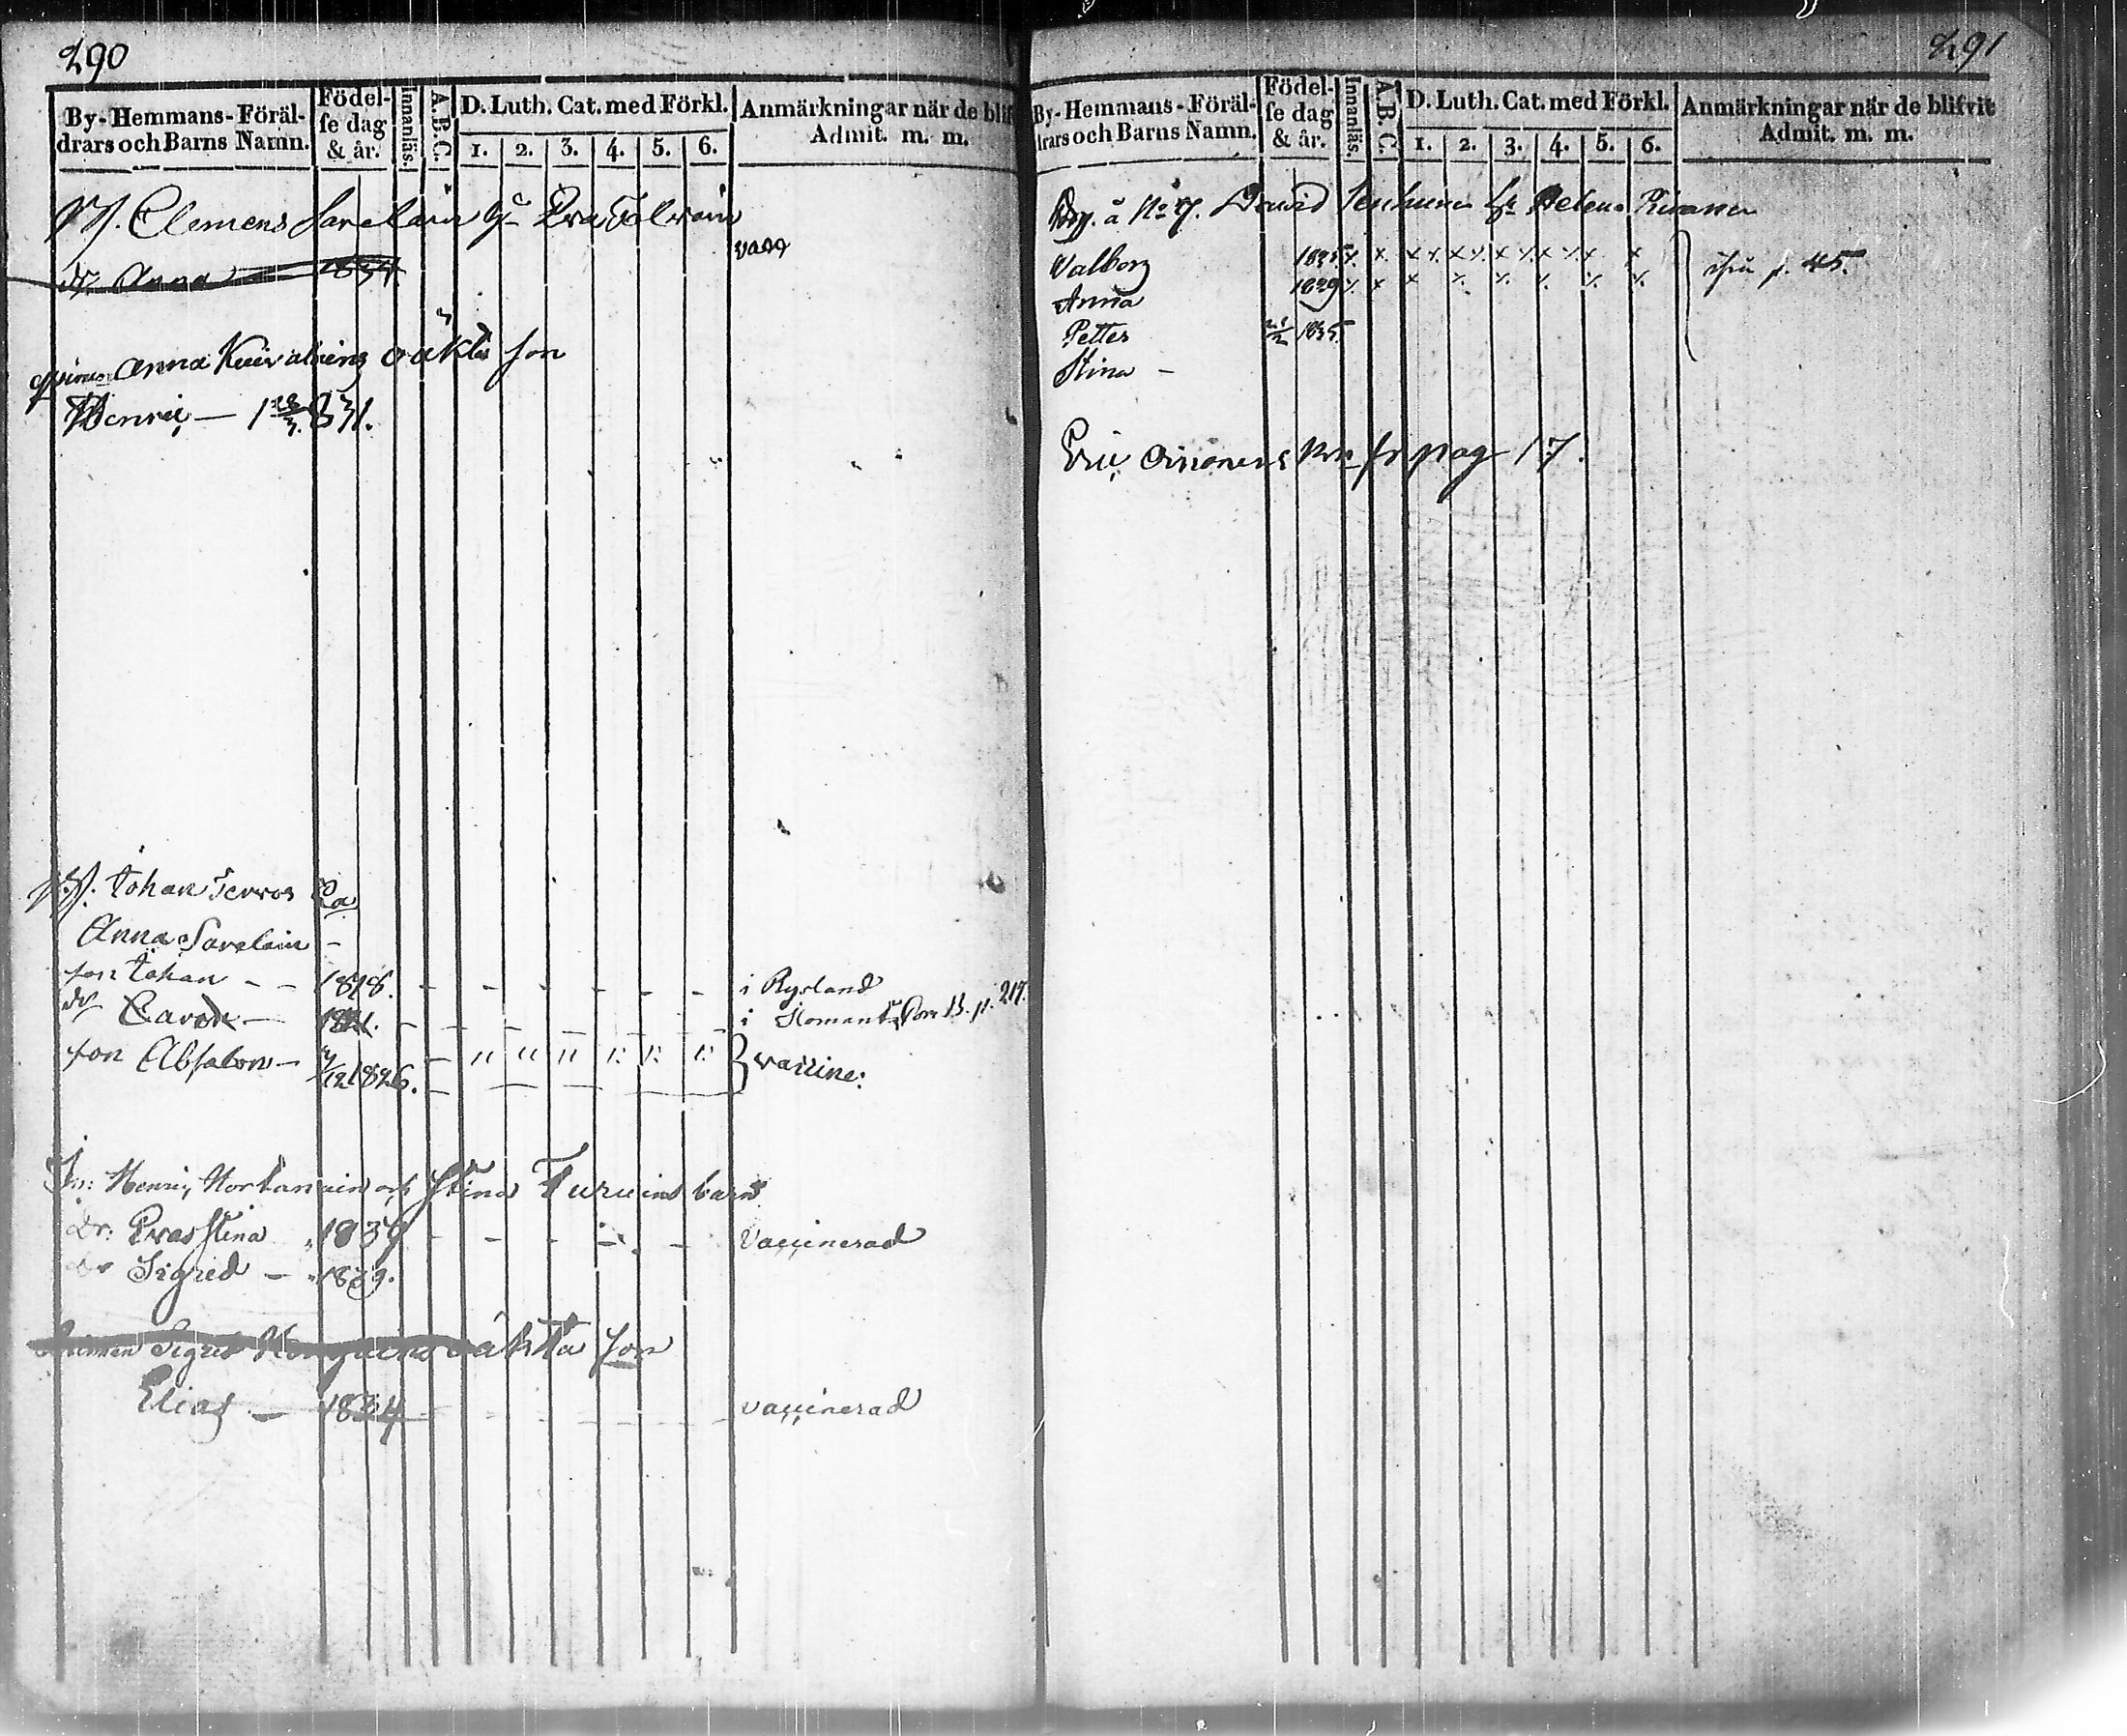 290
By-Hemmans-Föräldrars och Barns Namn.
Födelse dag & år.
Innanläs.
A.B.C.
D. Luth. Cat. med Förkl.
1. 2. 3. 4. 5. 6.
Anmärkningar när de blif
Admit. m. m.
Clemens Savelain Eva Tolvain
vacc
dr Anna 1834
Anna Kuivalains oäkta son
Henric — 1 28/3 831.
Johan Tervos
Anna Savelain -
son Johan - - 1818. - - - - - - i Ryssland
dr 1821. - - - - - - i Ilomants Com B. p. 217.
son Absalon - /12 1826. - " " " " " " vaccine:
Henric, Hortanain och Stina Turuins barn
Dr: Eva Stina 1837 - - - - - vaccinerad
dr Sigrid - 1839.
Sigrid oäkta son
Elias - 1834 vaccinerad
291
By-Hemmans-Föräldrars och Barns Namn.
Födelse dag & år.
Innanläs.
A.B.C.
D. Luth. Cat. med Förkl.
1. 2. 3. 4. 5. 6.
Anmärkningar när de blifvit
Admit. m. m.
å No 7. David Helena
Valborg 1825
Anna 1829
p. 45.
Petter 1835
Stina -
Eric pag 17.